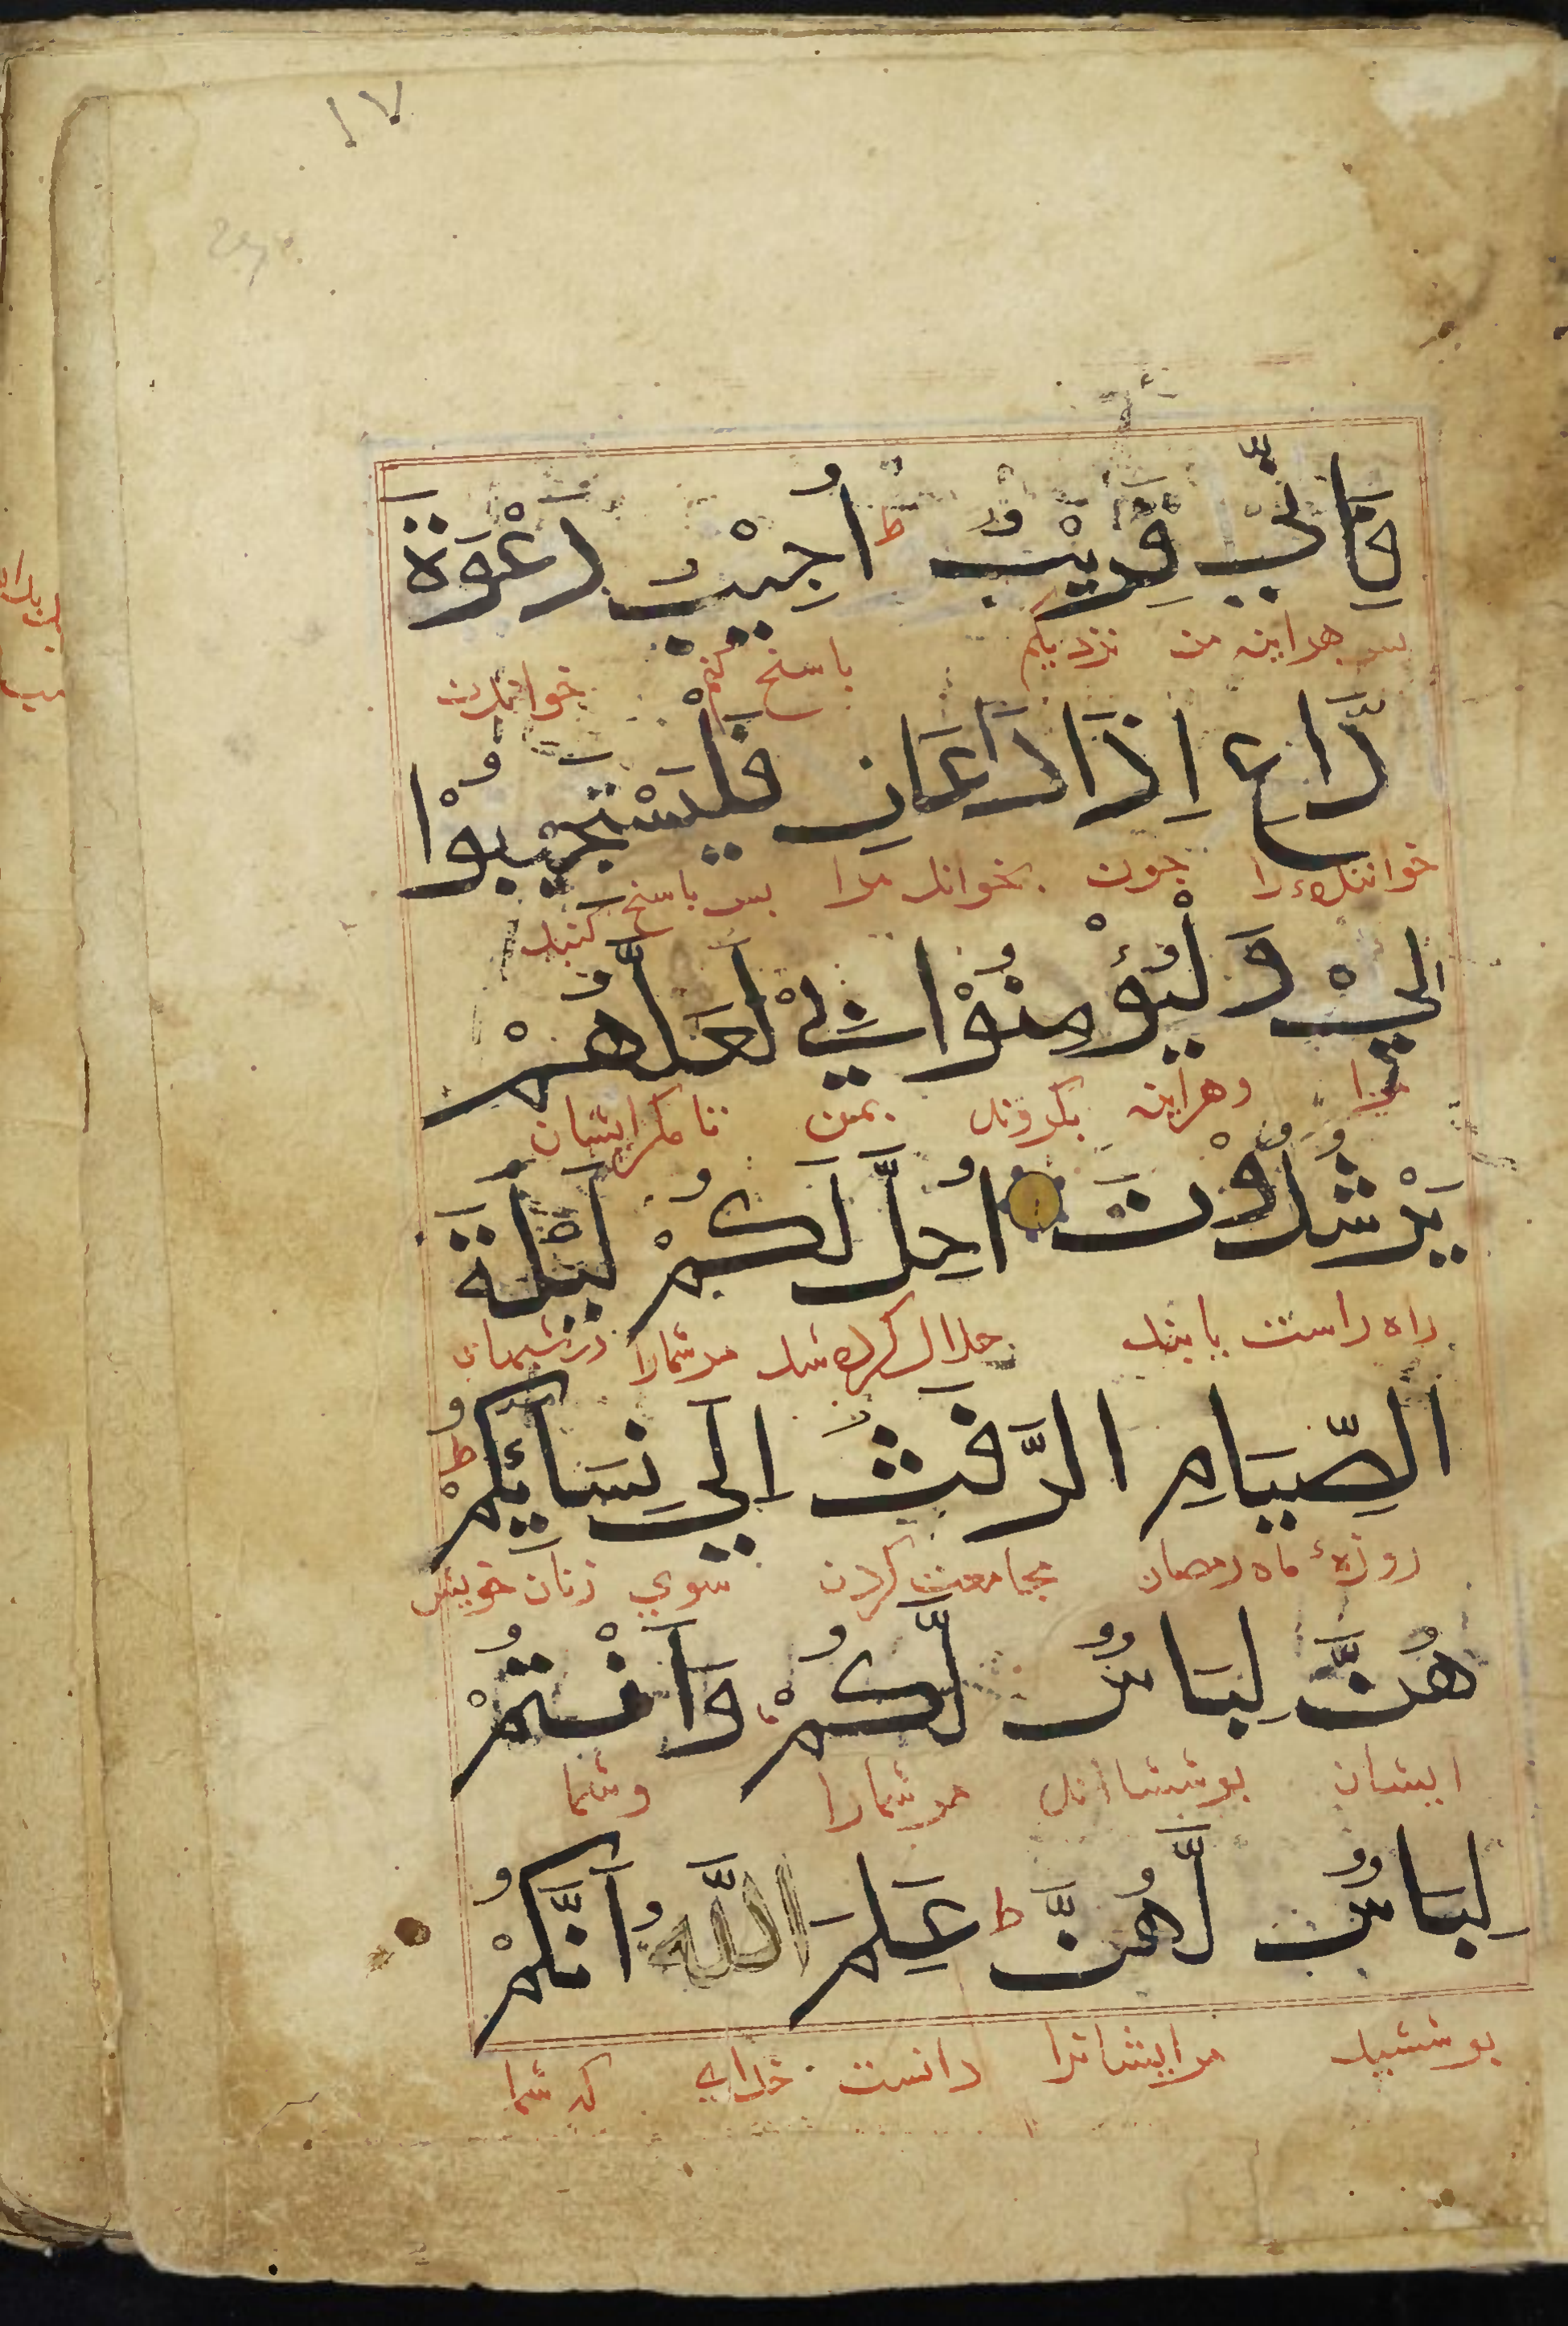 ١٧
فَاِنِّيْ قَرِيْبٌ ط اُجِيْبُ دَعْوَةَ
پس هراینه من نزدیکم پاسخ کنم خواندن
دَّاعِ اِذَا دَعَانِ فَلْيَسْتَجِيْبُوْا
خواننده را چون بخواند مرا پس پاسخ کنند
اِلِيْ وَلْيُؤْمِنُوْا بِيْ لَعَلَّهُمْ
مرا وهراینه بگروند بمن تا مگر ایشان
يَرْشُدُوْنَ اُحِلَّ لَكُمْ لَيْلَةَ
راه راست یابند حلال کرده شد مر شمارا در شبهای
الصِّيَامِ الرَّفَثُ اِلَي نِسَائِكُمْ ط
روزهٔ ماه رمضان مجامعت کردن سوی زنان خویش
هُنَّ لِبَاسٌ لَّكُمْ وَاَنْتُمْ
ایشان پوشش اند مر شمارا وشما
لِبَاسٌ لَّهُنَّ ط عَلِمَ اللَّهُ اَنَّكُمْ
پوششید مر ایشانرا دانست خدای که شما